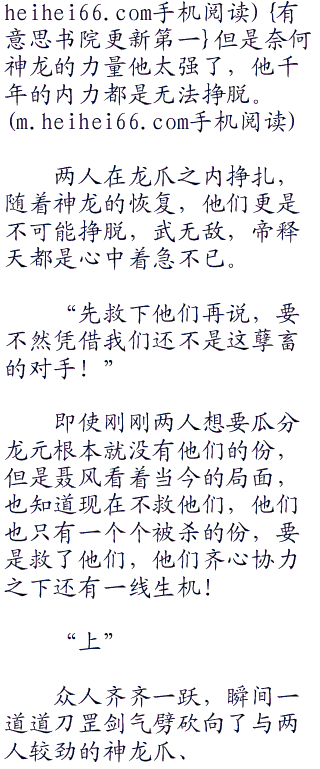 heihei66.com手机阅读){有
意思书院更新第一}但是奈何
神龙的力量他太强了，他千
年的内力都是无法挣脱。
(m.heihei66.com手机阅读)
两人在龙爪之内挣扎，
随着神龙的恢复，他们更是
不可能挣脱，武无敌，帝释
天都是心中着急不已。
“先救下他们再说，要
不然凭借我们还不是这孽畜
的对手！”
即使刚刚两人想要瓜分
龙元根本就没有他们的份，
但是聂风看着当今的局面，
也知道现在不救他们，他们
也只有一个个被杀的份，要
是救了他们，他们齐心协力
之下还有一线生机！
“上”
众人齐齐一跃，瞬间一
道道刀罡剑气劈砍向了与两
人较劲的神龙爪、